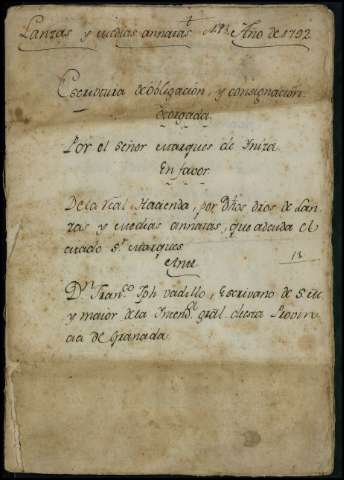 Lanzas y medias annatas Año de 1792
Escriptura de obligacion, y consignacion
otorgada
Por el señor Marques de Yniza
En favor
De la Real Hacienda, por dhos dros de Lan
zas y medias annatas, que adeuda el
citado Sr Marques
Ante
13
Dn Franco Jph vadillo, Escrivano de S. M.
y maior de la Yntendª gral de esta Provin
cia de Granada.